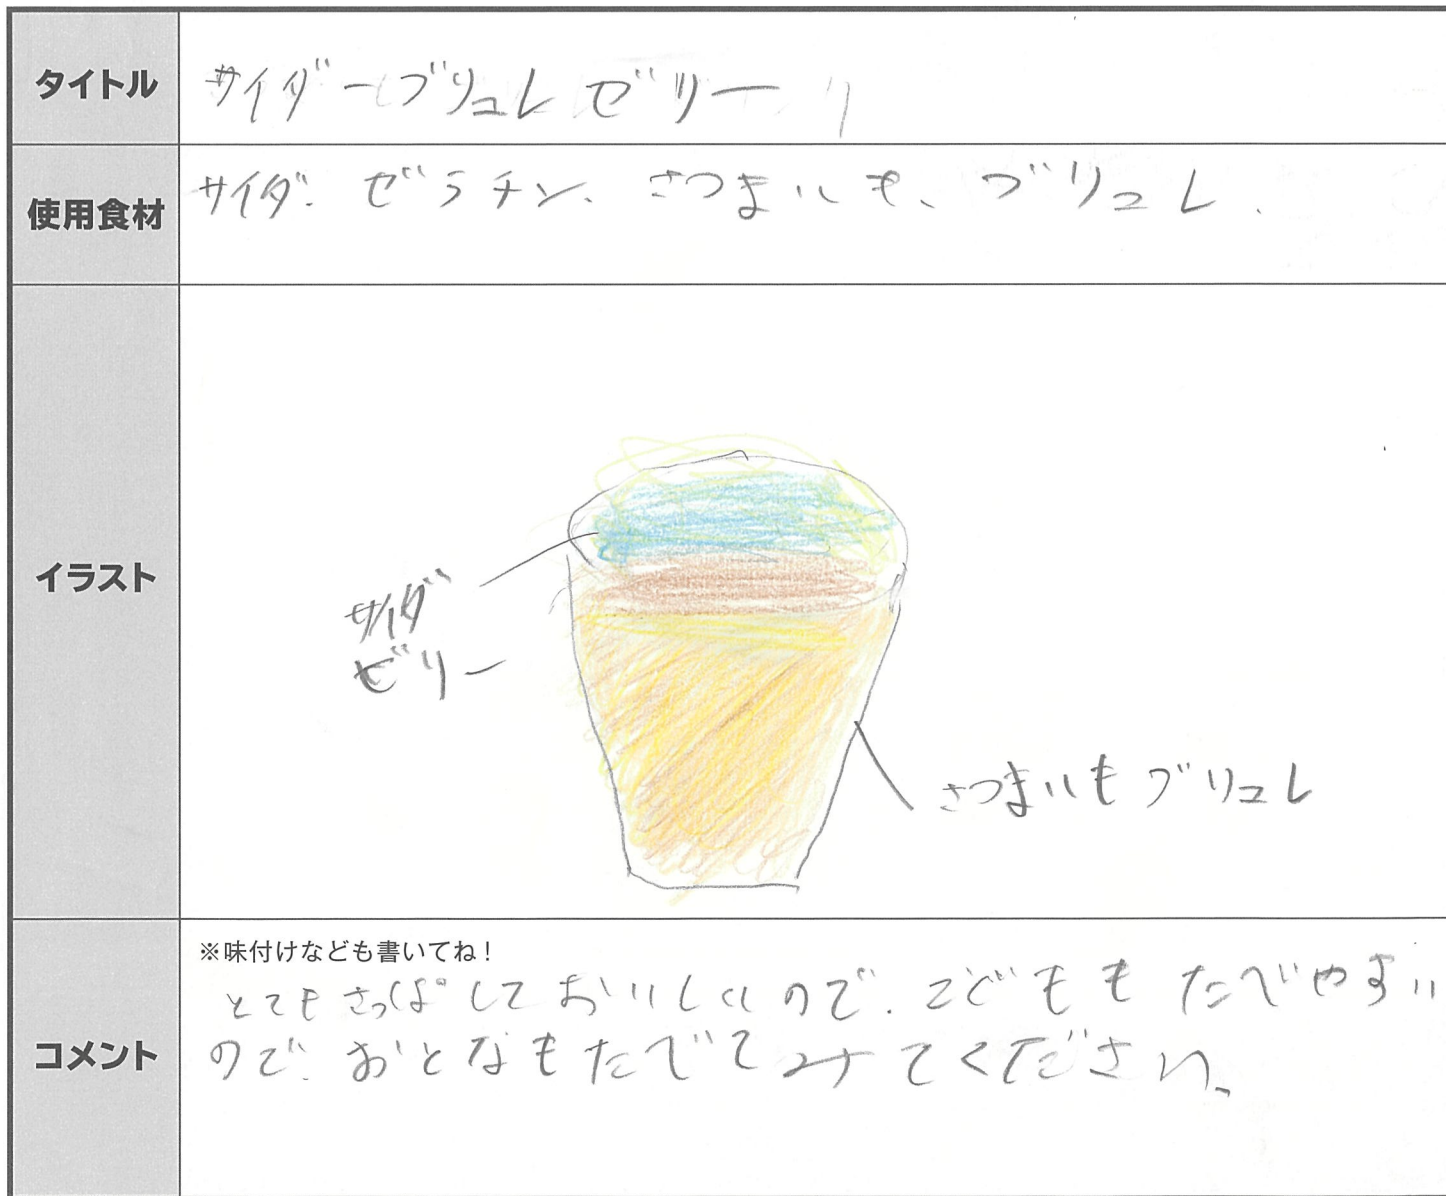 タイトル
サイダーブリュレゼリー
使用食材
サイダ、ゼラチン、さつまいも、ブリュレ、
イラスト
サイダ
ゼリー
さつまいもブリュレ
コメント
※味付けなども書いてね！
とてもさっぱしておいしいので、こどももたべやすい
ので、おとなもたべてみてください、